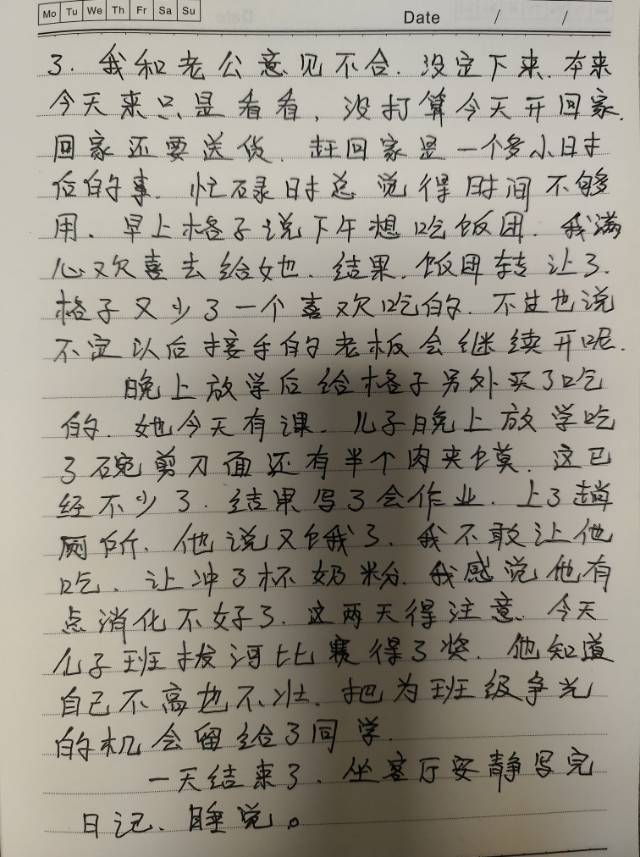 Mo Tu We Th Fr Sa Su
Date / /
3. 我和老公意见不合. 没定下来. 本来
今天来只是看看, 没打算今天开回家.
回家还要送货. 赶回家是一个多小时
后的事. 忙碌时总觉得时间不够
用. 早上格子说下午想吃饭团. 我满
心欢喜去给她. 结果. 饭团转让了.
格子又少了一个喜欢吃的. 不过也说
不定以后接手的老板会继续开呢.
晚上放学后给格子另外买了吃
的. 她今天有课. 儿子晚上放学吃
了碗剪刀面还有半个肉夹馍. 这已
经不少了. 结果写了会作业. 上了趟
厕所. 他说又饿了. 我不敢让他
吃. 让冲了杯奶粉. 我感觉他有
点消化不好了. 这两天得注意. 今天
儿子班拔河比赛得了奖. 他知道
自己不高也不壮. 把为班级争光
的机会留给了同学.
一天结束了. 坐客厅安静写完
日记. 睡觉。